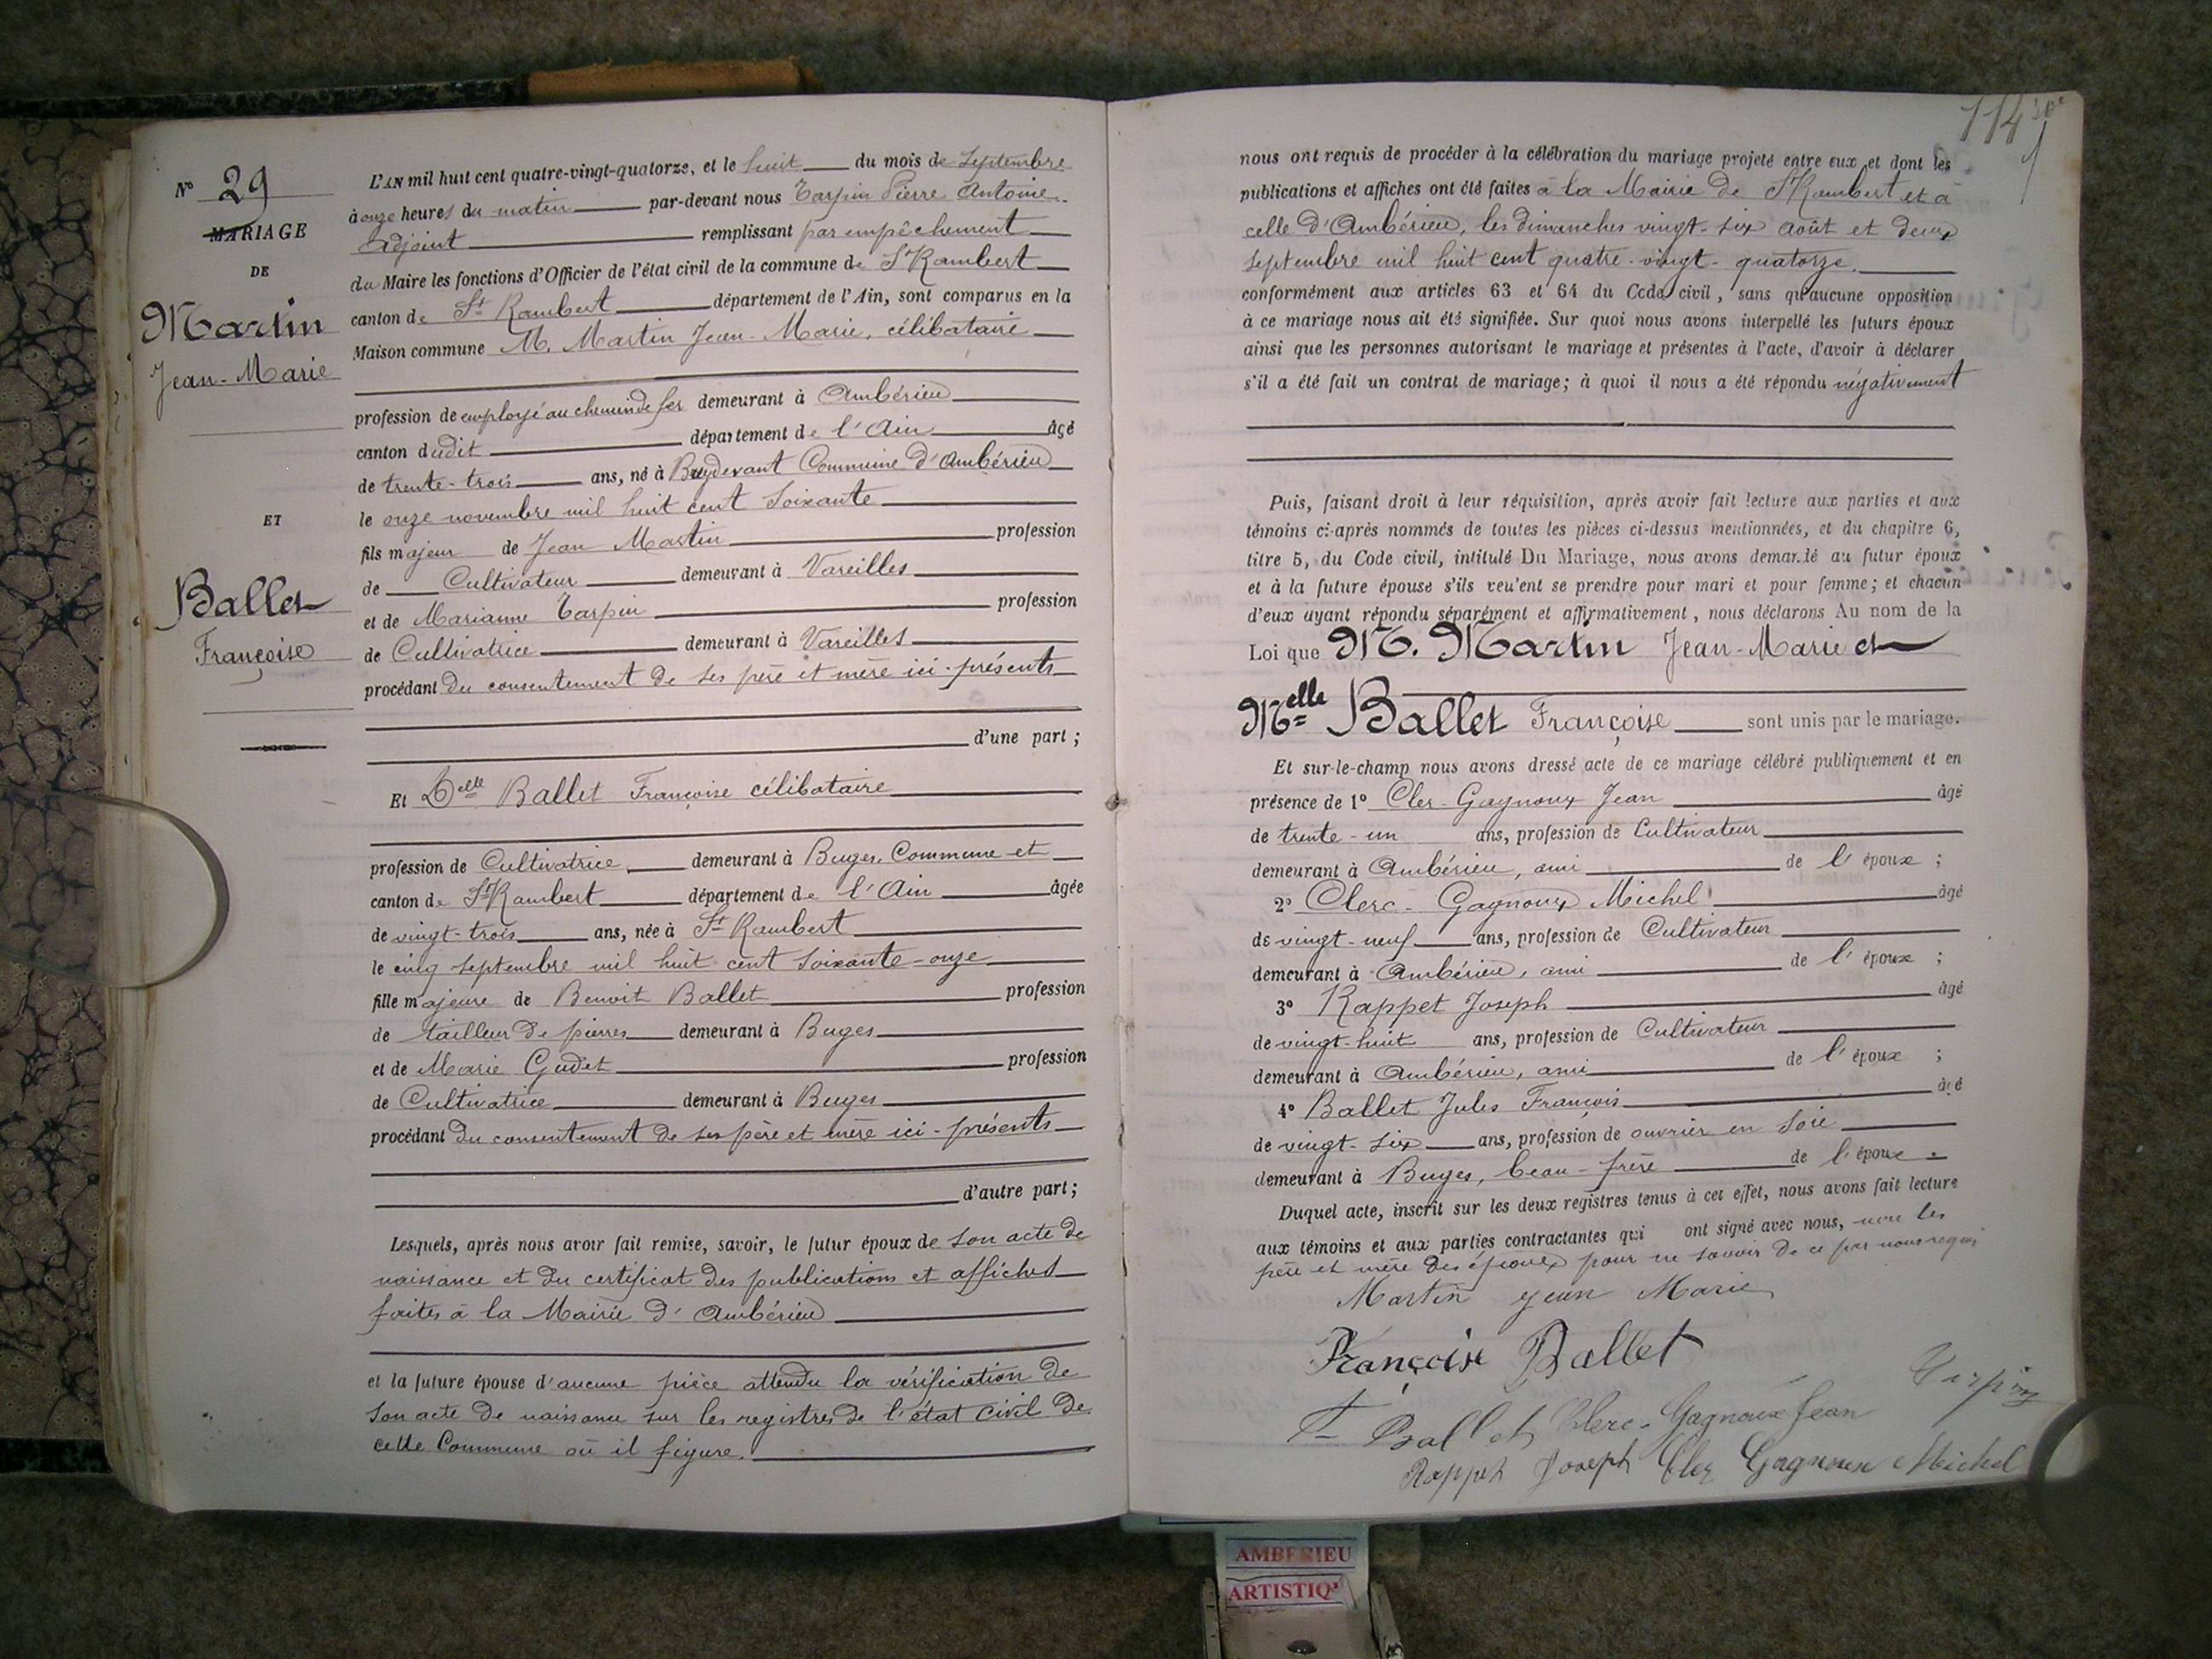 N° 29
MARIAGE
DE
Martin
Jean-Marie
ET
Ballet
Françoise
L'AN mil huit cent quatre-vingt-quatorze, et le huit du mois de Septembre
à onze heures du matin par-devant nous Tarpin Pierre Antoine
adjoint remplissant par empêchement
du Maire les fonctions d'Officier de l'état civil de la commune de St Rambert
canton de St Rambert département de l'Ain, sont comparus en la
Maison commune M. Martin Jean-Marie, célibataire
profession de employé au chemin de fer demeurant à Ambérieu
canton dudit département de l'Ain âgé
de trente-trois ans, né à Breydevant Commune d'Ambérieu
le onze novembre mil huit cent soixante
fils majeur de Jean Martin profession
de Cultivateur demeurant à Vareilles
et de Marianne Tarpin profession
de Cultivatrice demeurant à Vareilles
procédant du consentement de ses père et mère ici-présents
d'une part ;
Et Delle Ballet Françoise célibataire
profession de Cultivatrice demeurant à Buges, Commune et
canton de St Rambert département de l'Ain âgée
de vingt-trois ans, née à St Rambert
le cinq septembre mil huit cent soixante-onze
fille majeure de Benoit Ballet profession
de tailleur de pierres demeurant à Buges
et de Marie Gudet profession
de Cultivatrice demeurant à Buges
procédant du consentement de ses père et mère ici-présents
d'autre part ;
Lesquels, après nous avoir fait remise, savoir, le futur époux de son acte de
naissance et du certificat des publications et affiches
faites à la Mairie d'Ambérieu
et la future épouse d'aucune pièce attendu la vérification de
son acte de naissance sur les registres de l'état civil de
cette Commune où il figure.
114
nous ont requis de procéder à la célébration du mariage projeté entre eux et dont les
publications et affiches ont été faites à la Mairie de St Rambert et à
celle d'Ambérieu, les dimanches vingt-six août et deux
septembre mil huit cent quatre-vingt-quatorze.
conformément aux articles 63 et 64 du Code civil, sans qu'aucune opposition
à ce mariage nous ait été signifiée. Sur quoi nous avons interpellé les futurs époux
ainsi que les personnes autorisant le mariage et présentes à l'acte, d'avoir à déclarer
s'il a été fait un contrat de mariage ; à quoi il nous a été répondu négativement
Puis, faisant droit à leur réquisition, après avoir fait lecture aux parties et aux
témoins ci-après nommés de toutes les pièces ci-dessus mentionnées, et du chapitre 6,
titre 5, du Code civil, intitulé Du Mariage, nous avons demandé au futur époux
et à la future épouse s'ils veulent se prendre pour mari et pour femme ; et chacun
d'eux ayant répondu séparément et affirmativement, nous déclarons Au nom de la
Loi que M. Martin Jean-Marie et
Melle Ballet Françoise sont unis par le mariage.
Et sur-le-champ nous avons dressé acte de ce mariage célébré publiquement et en
présence de 1° Cler-Gagnoux Jean âgé
de trente-un ans, profession de Cultivateur
demeurant à Ambérieu, ami de l'époux ;
2° Clerc-Gagnoux Michel âgé
de vingt-neuf ans, profession de Cultivateur
demeurant à Ambérieu, ami de l'époux ;
3° Rappet Joseph âgé
de vingt-huit ans, profession de Cultivateur
demeurant à Ambérieu, ami de l'époux ;
4° Ballet Jules François âgé
de vingt-six ans, profession de ouvrier en soie
demeurant à Buges, beau-frère de l'époux.
Duquel acte, inscrit sur les deux registres tenus à cet effet, nous avons fait lecture
aux témoins et aux parties contractantes qui ont signé avec nous, non les
père et mère des époux pour ne savoir de ce par nous requis
Martin Jean Marie
Françoise Ballet
Tarpin
Ballet Clerc-Gagnoux Jean
Rappet Joseph Cler Gagnoux Michel
AMBERIEU
ARTISTIQ